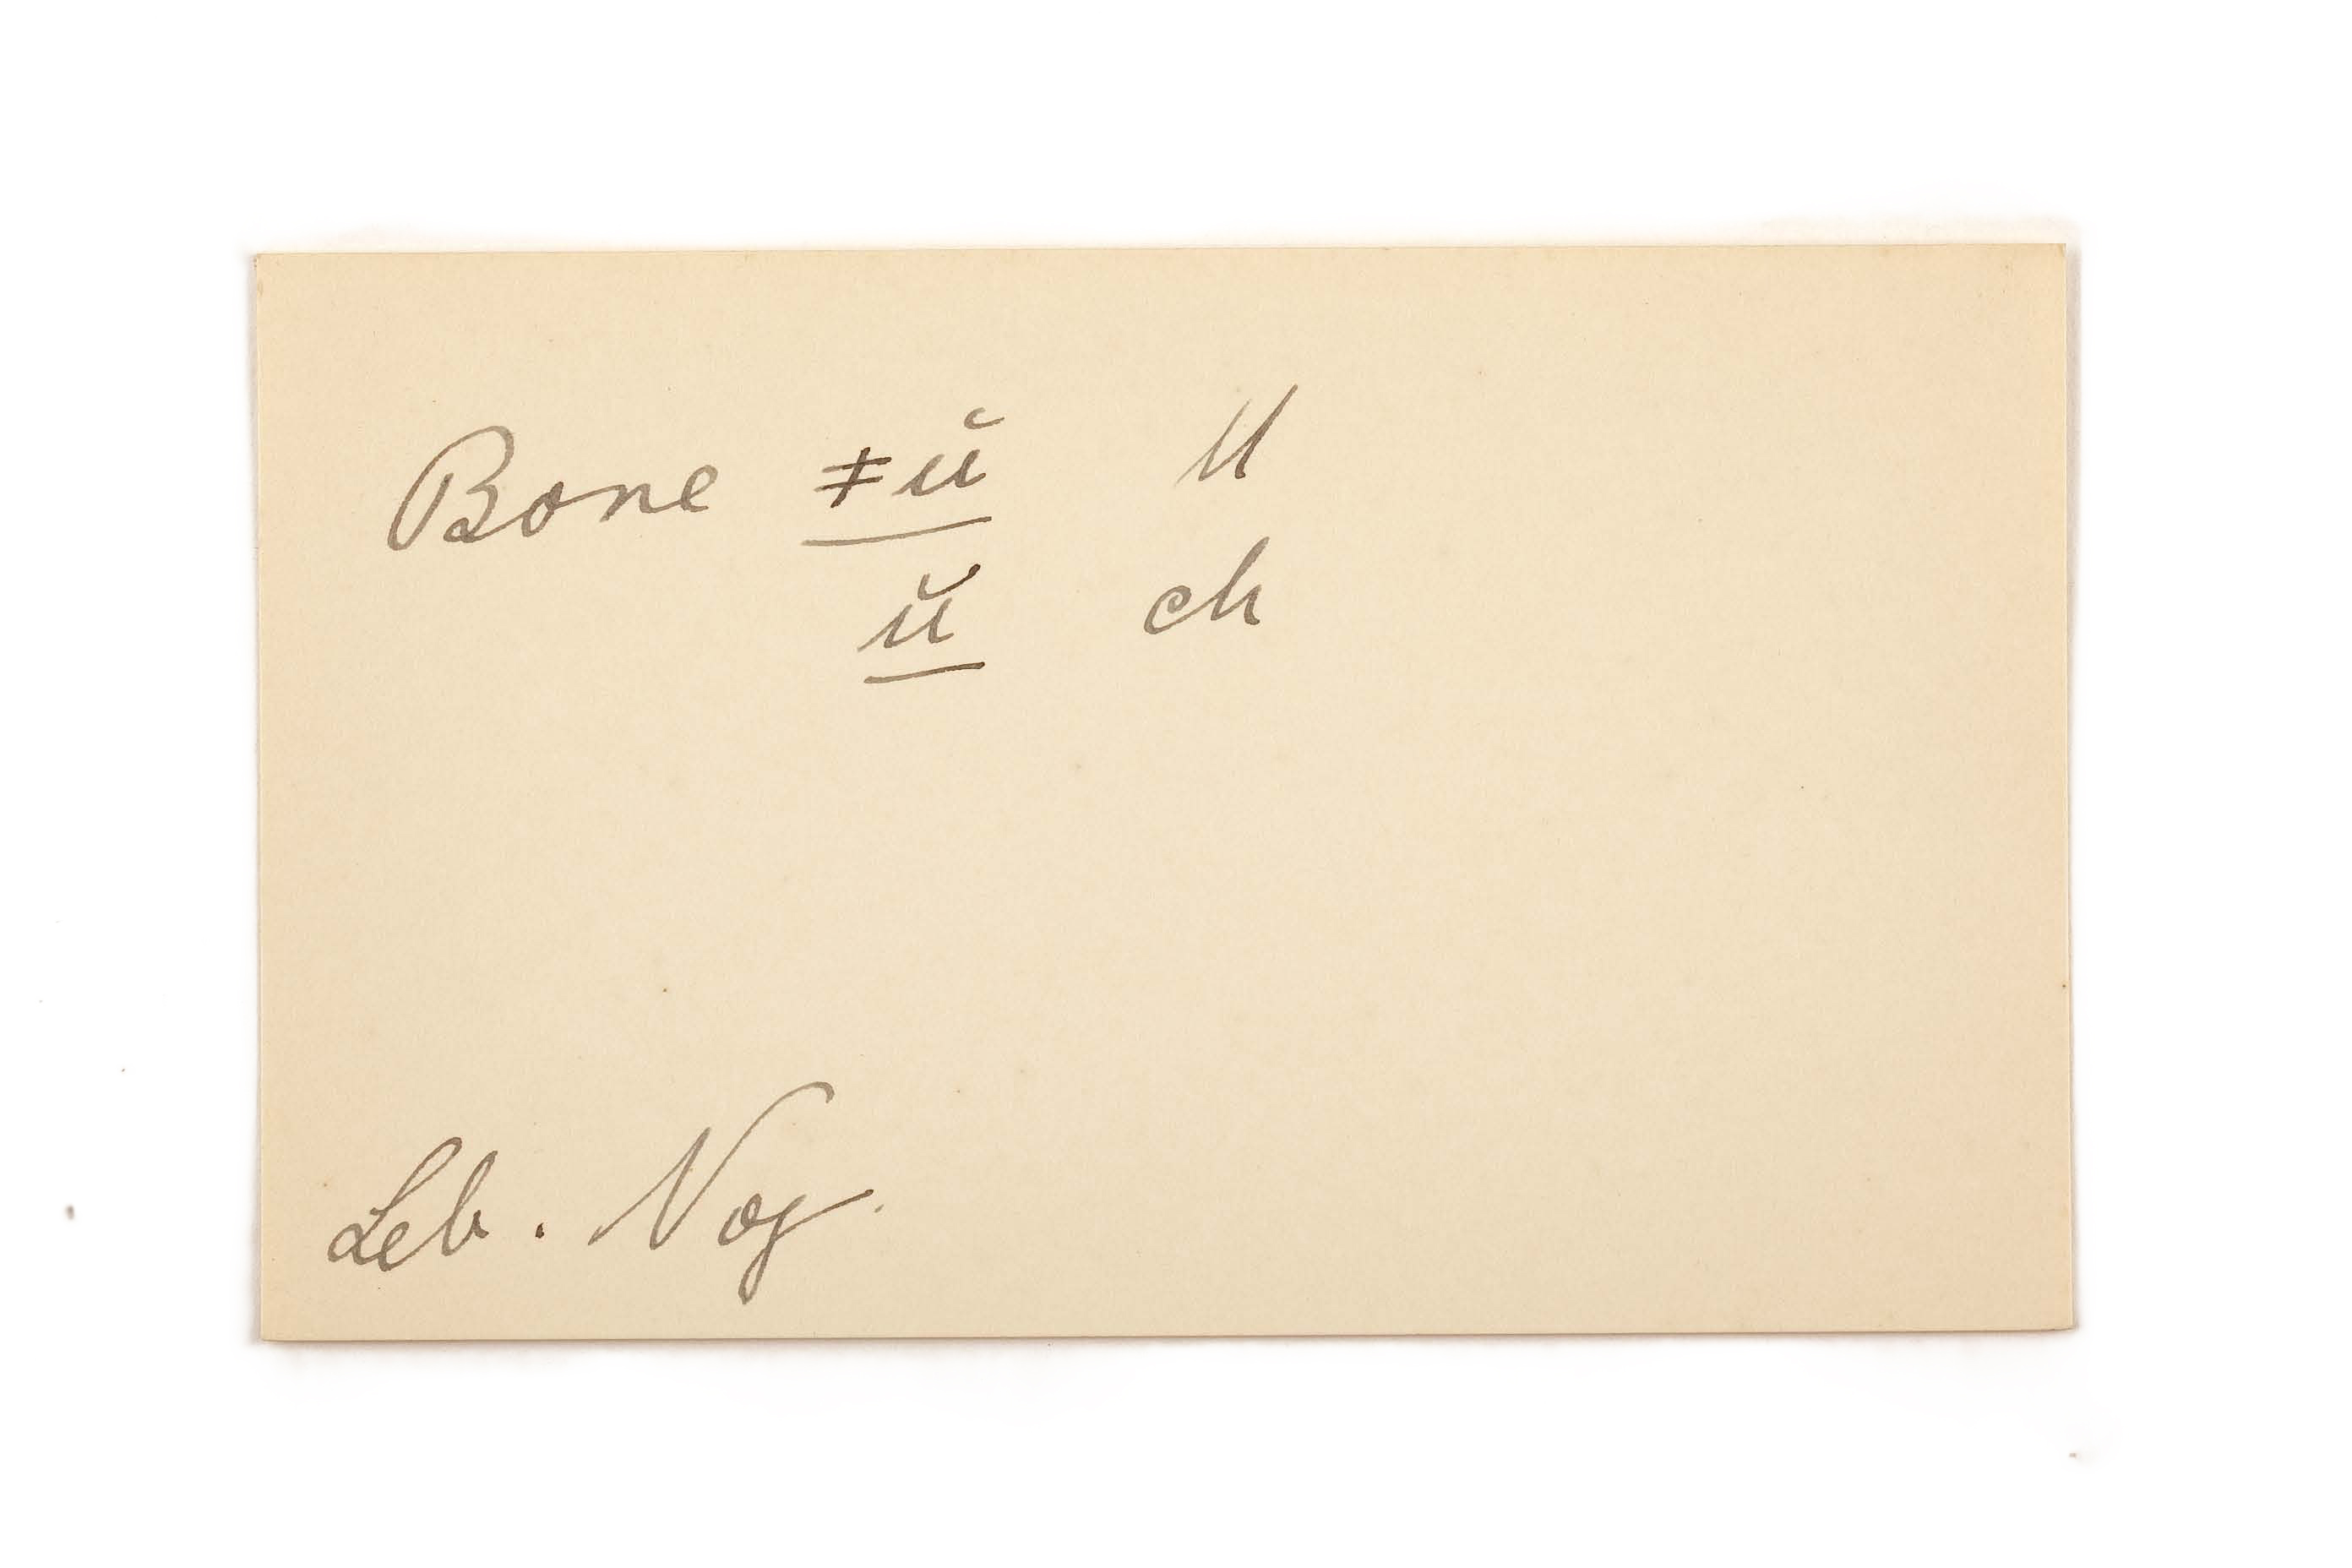 Bone ǂŭ ll
ŭ ch
Leb. Nog.